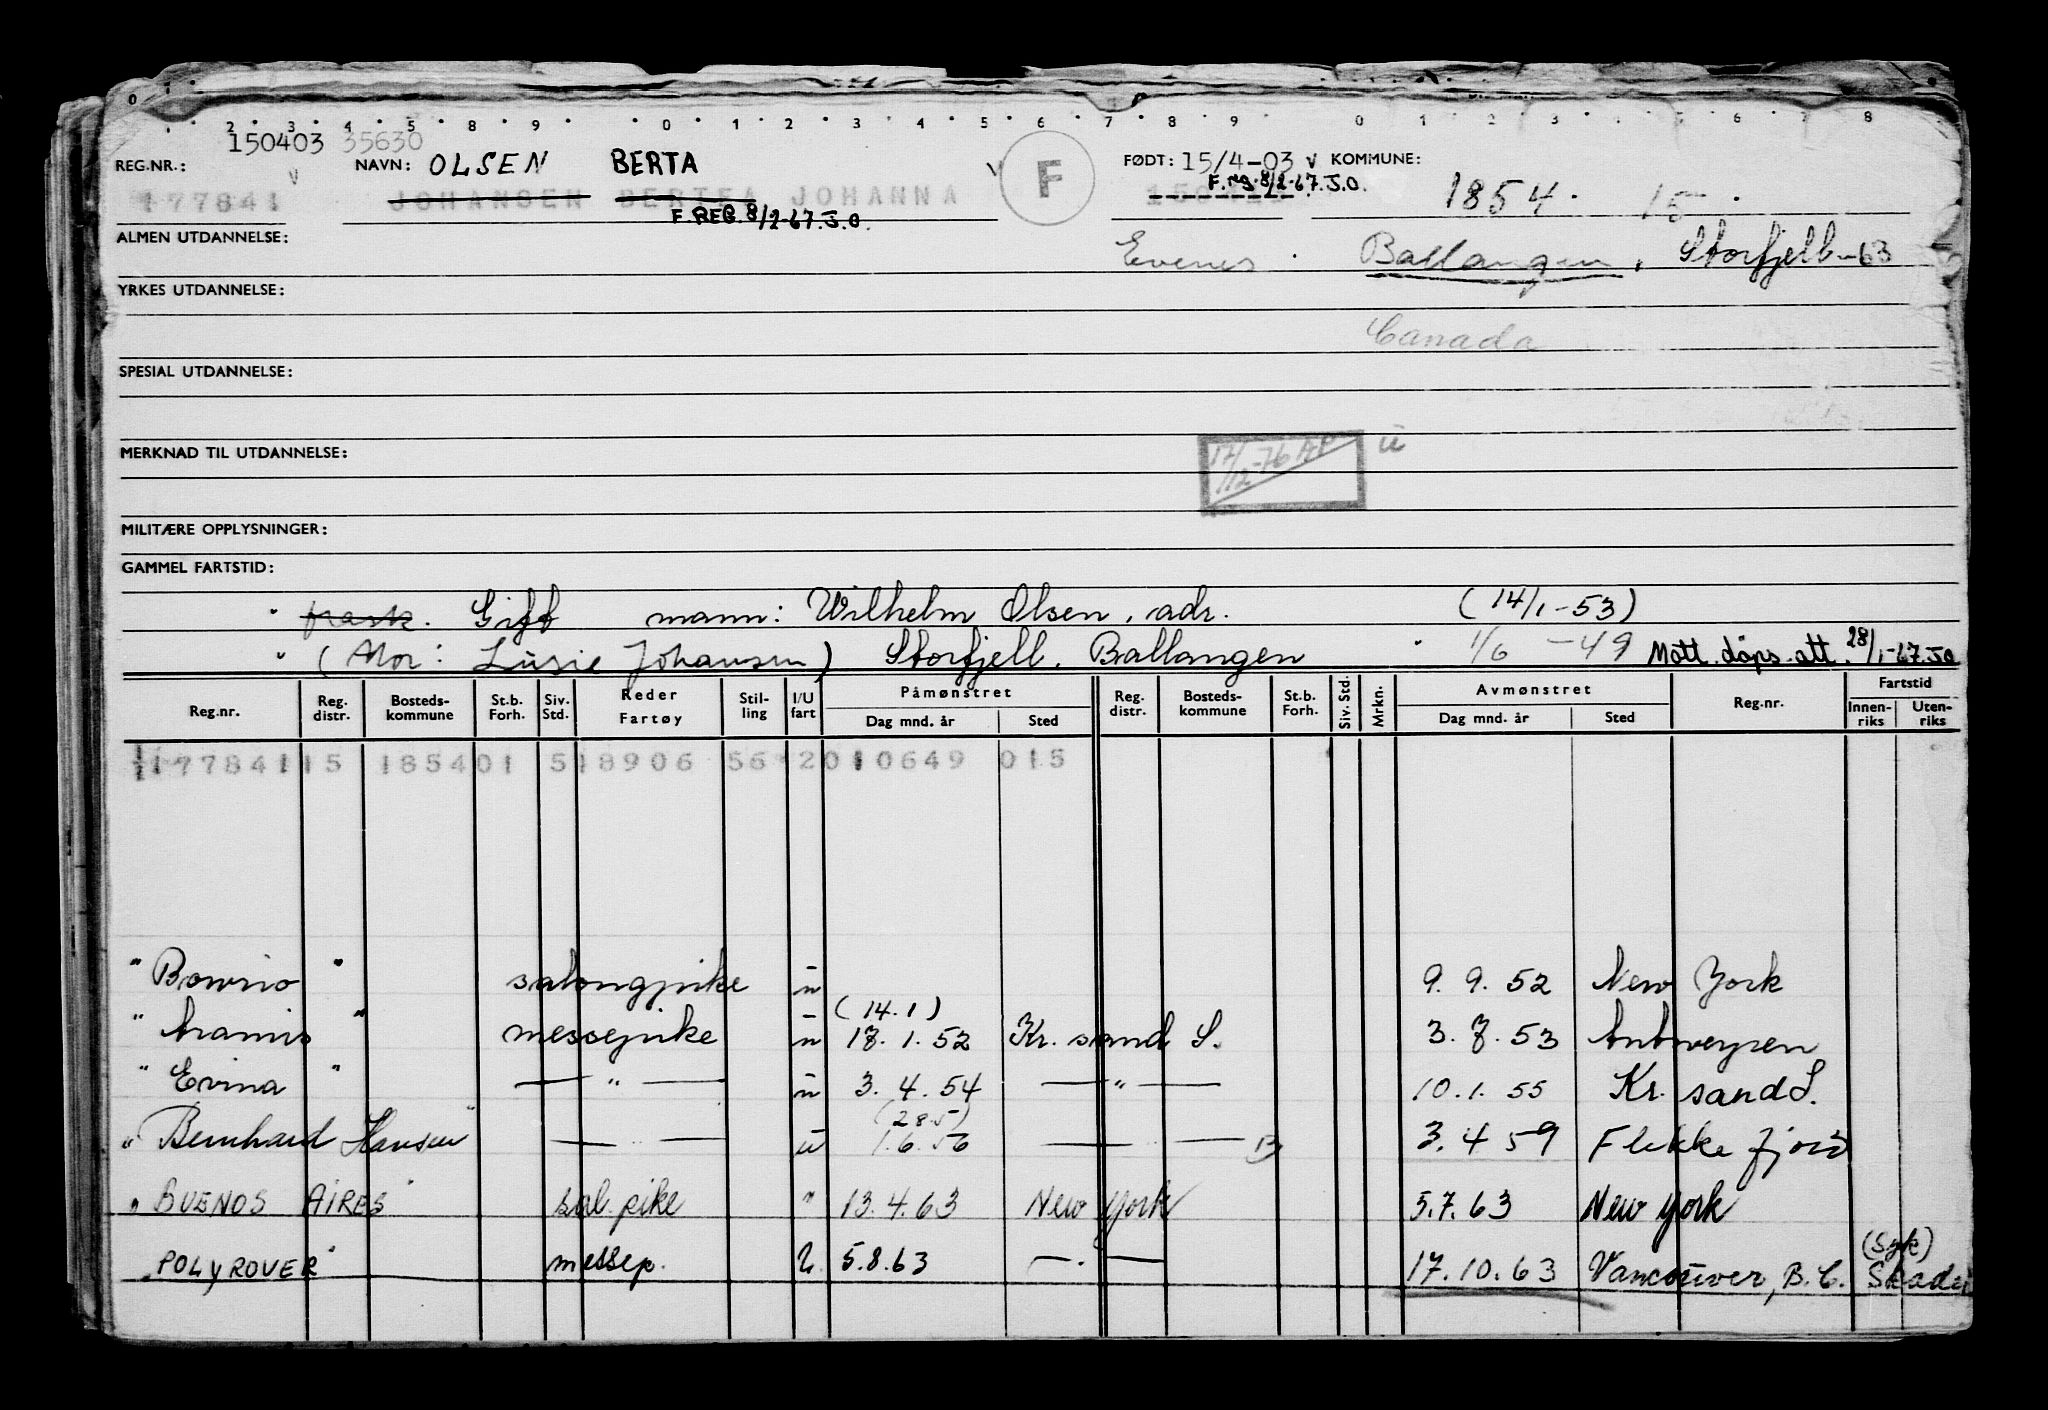 0 1 2 3 4 5 8 9 0 1 2 3 4 5 6 7 8 9 0 1 2 3 4 5 6 7 8
150403 35630
REG.NR.: NAVN: OLSEN BERTA F FØDT: 15/4-03 v KOMMUNE:
177841 JOHANSEN BERTEA JOHANNA F.reg. 8/2-67. J.O. 1854. 15.
F.REG. 8/2-67. J.O.
ALMEN UTDANNELSE: Evenes Ballangen, Storfjell -63
YRKES UTDANNELSE:
Canada
SPESIAL UTDANNELSE:
MERKNAD TIL UTDANNELSE: 17/12-76 ū
MILITÆRE OPPLYSNINGER:
GAMMEL FARTSTID:
" frask. Gift mann: Wilhelm Olsen, adr. (14/1-53)
" (Mor: Lusie Johansen) Storfjell. Ballangen " 1/6 -49 Mott. dåps.att. 28/1-67. JO
Reg.nr. Reg. distr. Bosteds-kommune St.b. Forh. Siv. Std. Reder Fartøy Stil-ling I/U fart Påmønstret Dag mnd. år Sted Reg. distr. Bosteds-kommune St.b. Forh. Siv. Std. Mrkn. Avmønstret Dag mnd. år Sted Reg.nr. Fartstid Innen-riks Uten-riks
177841 15 1854 01 5 18906 56 2 010649 015
" Bowrio " salongpike ū 9. 9. 52 New York
(14.1)
" Aramis " messepike ū 17. 1. 52 Kr. sand S. 3. 7. 53 Antwerpen
" Evina " — " — ū 3. 4. 54 — " — 10. 1. 55 Kr. sand S.
(28.5)
" Bernhard Hansen " — " — ū 1. 6. 56 — — 3. 4 59 Flekkefjord
" BUENOS AIRES " sal. pike " 13. 4. 63 New York 5. 7. 63 New York
(Syk)
" POLYROVER " messep. U 5. 8. 63 — " — 17. 10. 63 Vancouver, B. C. Skadet